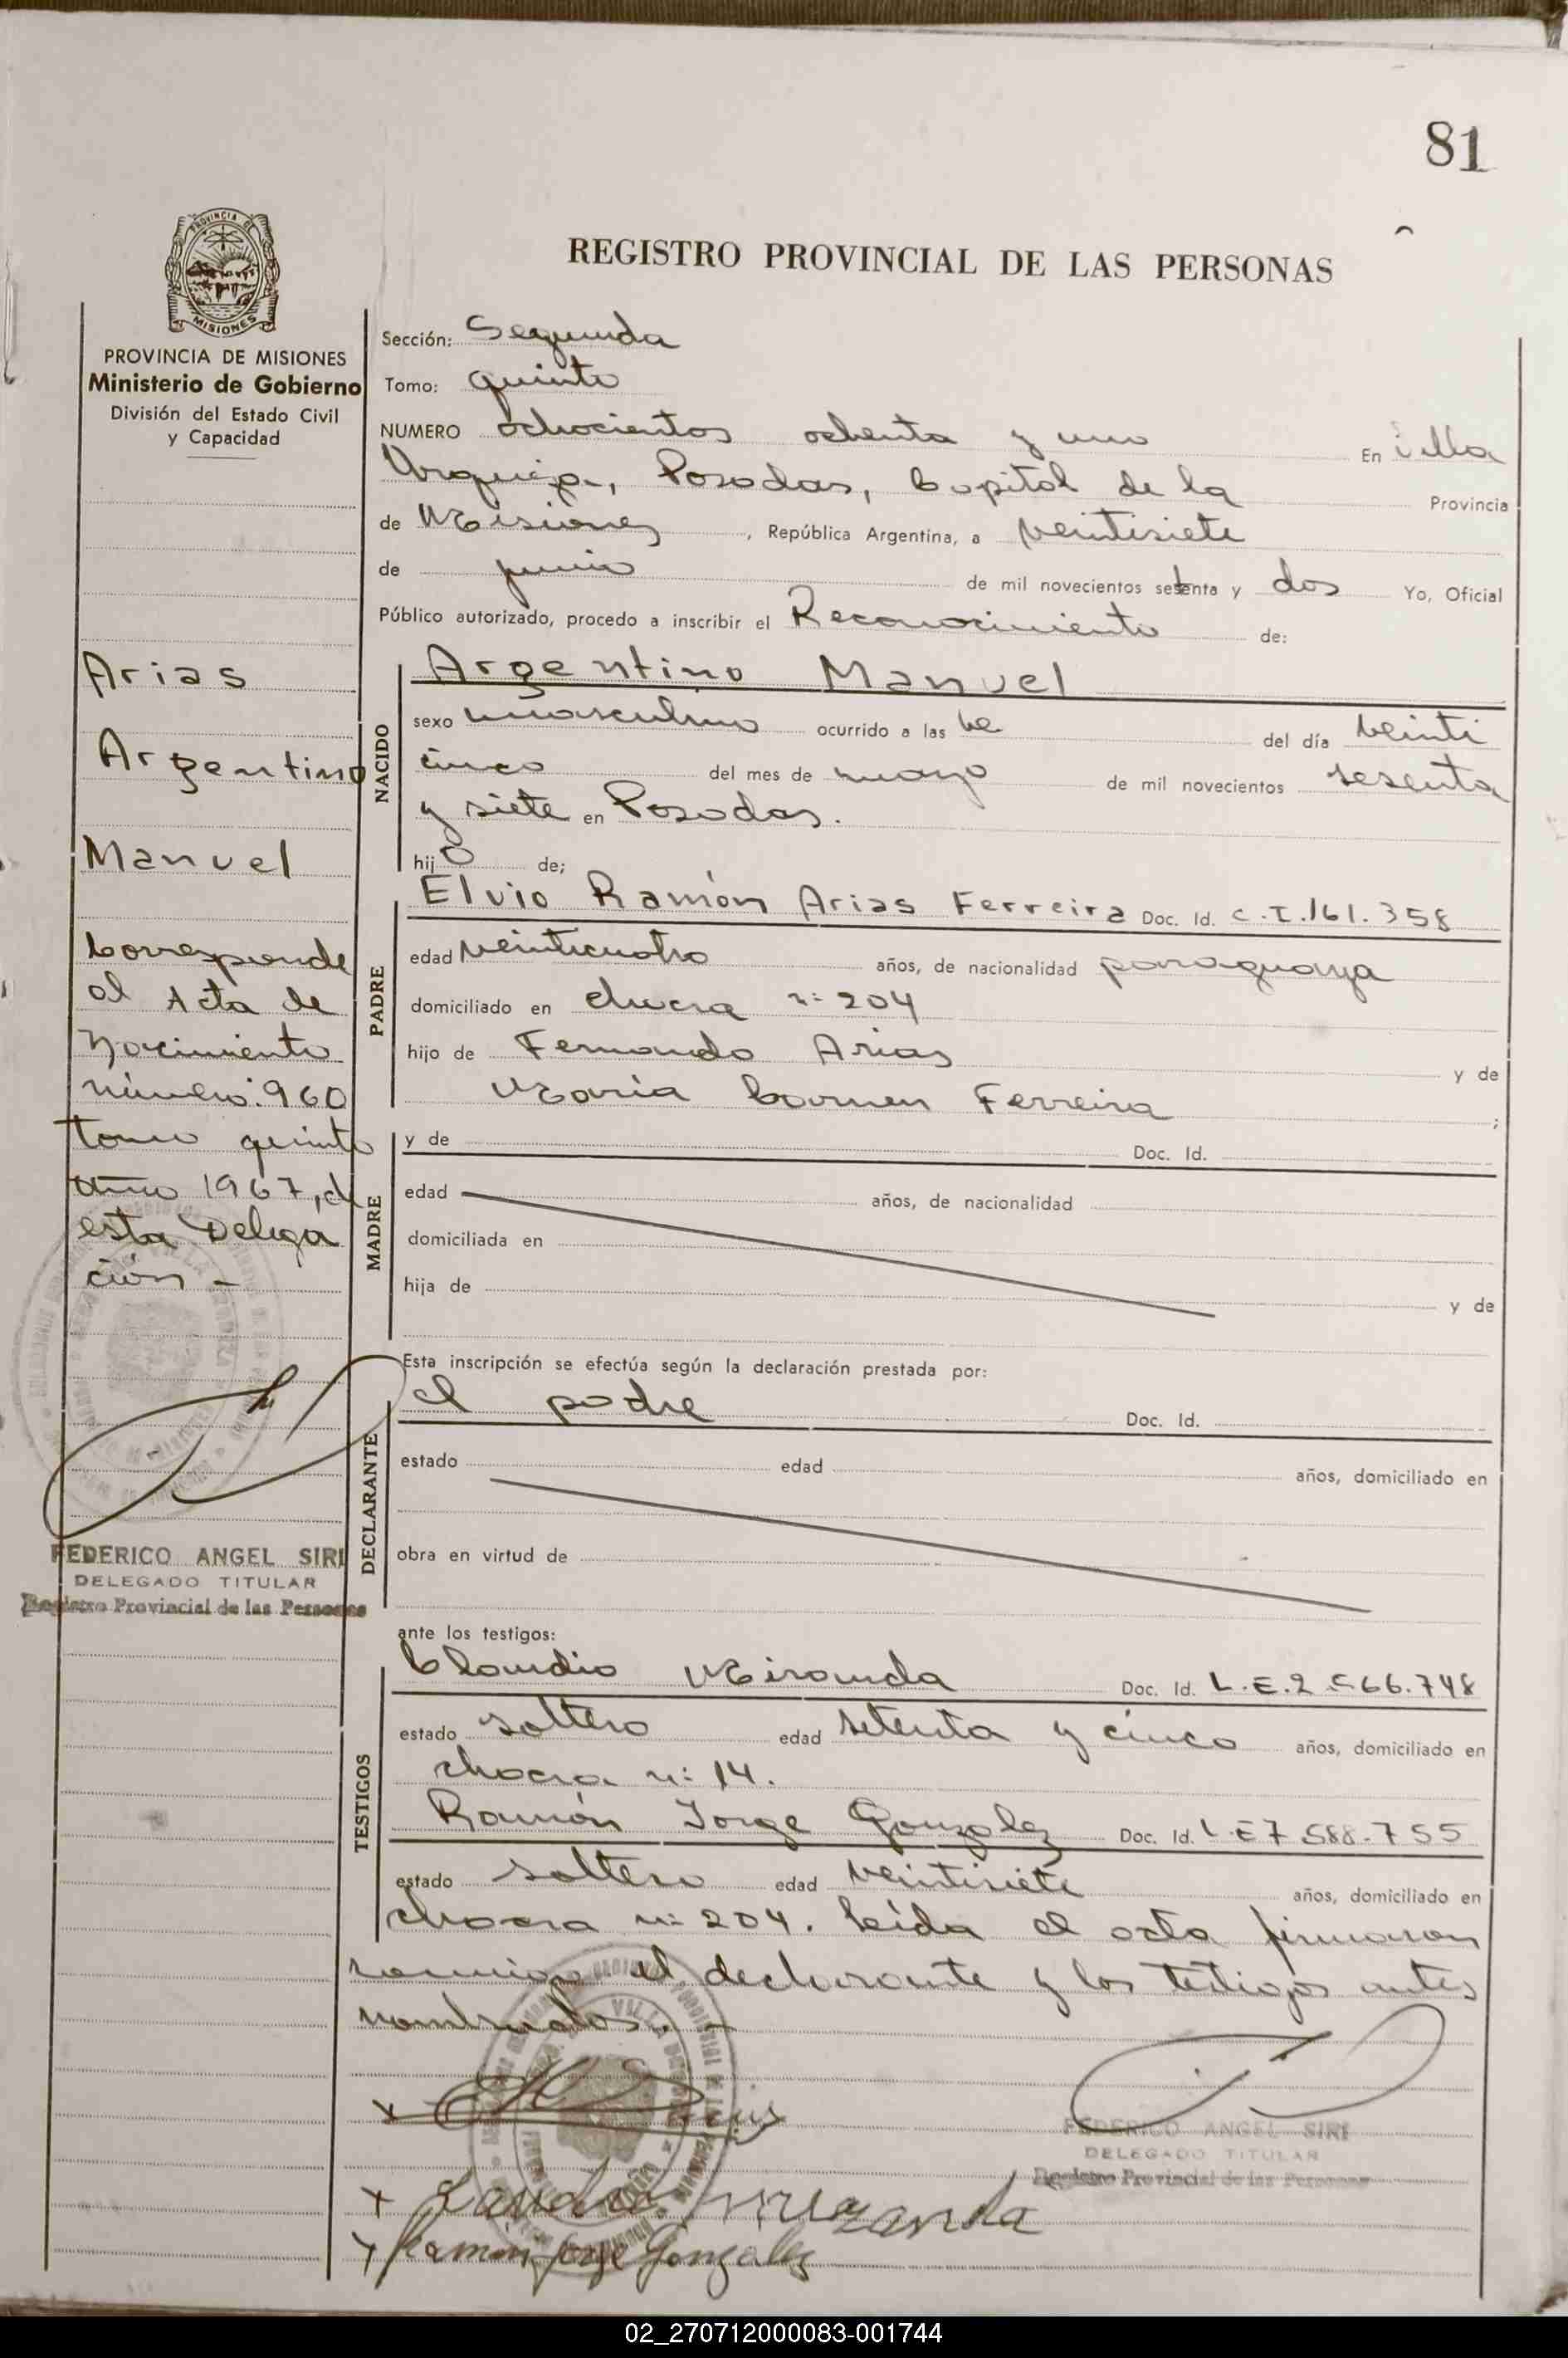 81
REGISTRO PROVINCIAL DE LAS PERSONAS
PROVINCIA DE MISIONES
Ministerio de Gobierno
División del Estado Civil
y Capacidad
Arias
Argentino
Manuel
Corresponde
al Acta de
Nacimiento
número: 960
tomo quinto
año 1967, de
esta Delega
ción -
FEDERICO ANGEL SIRI
DELEGADO TITULAR
Registro Provincial de las Personas
Sección: Segunda
Tomo: quinto
NUMERO ochocientos ochenta y uno En Villa
Urquiza, Posadas, Capital de la Provincia
de Misiones, República Argentina, a veintisiete
de junio de mil novecientos setenta y dos Yo, Oficial
Público autorizado, procedo a inscribir el Reconocimiento de:
NACIDO
Argentino Manuel
sexo masculino ocurrido a las del día veinti
cinco del mes de mayo de mil novecientos sesenta
y siete en Posadas.
hijo de;
PADRE
Elvio Ramón Arias Ferreira Doc. Id. C.I. 161.358
edad veinticuatro años, de nacionalidad paraguaya
domiciliado en chacra n: 204
hijo de Fernando Arias y de
María Carmen Ferreira ;
MADRE
y de Doc. Id.
edad años, de nacionalidad
domiciliada en
hija de y de
DECLARANTE
Esta inscripción se efectúa según la declaración prestada por:
el padre Doc. Id.
estado edad años, domiciliado en
obra en virtud de
ante los testigos:
TESTIGOS
Claudio Miranda Doc. Id. L.E.
estado soltero edad setenta y cinco años, domiciliado en
chacra n: 14.
Ramón Jorge Gonzalez Doc. Id. L.E 7 588.755
estado soltero edad veintisiete años, domiciliado en
chacra n: 204. Leída el acta firmaron
conmigo el declarante y los testigos antes
nombrados. -
FEDERICO ANGEL SIRI
DELEGADO TITULAR
Registro Provincial de las Personas
Ramón Jorge Gonzalez
02_270712000083-001744